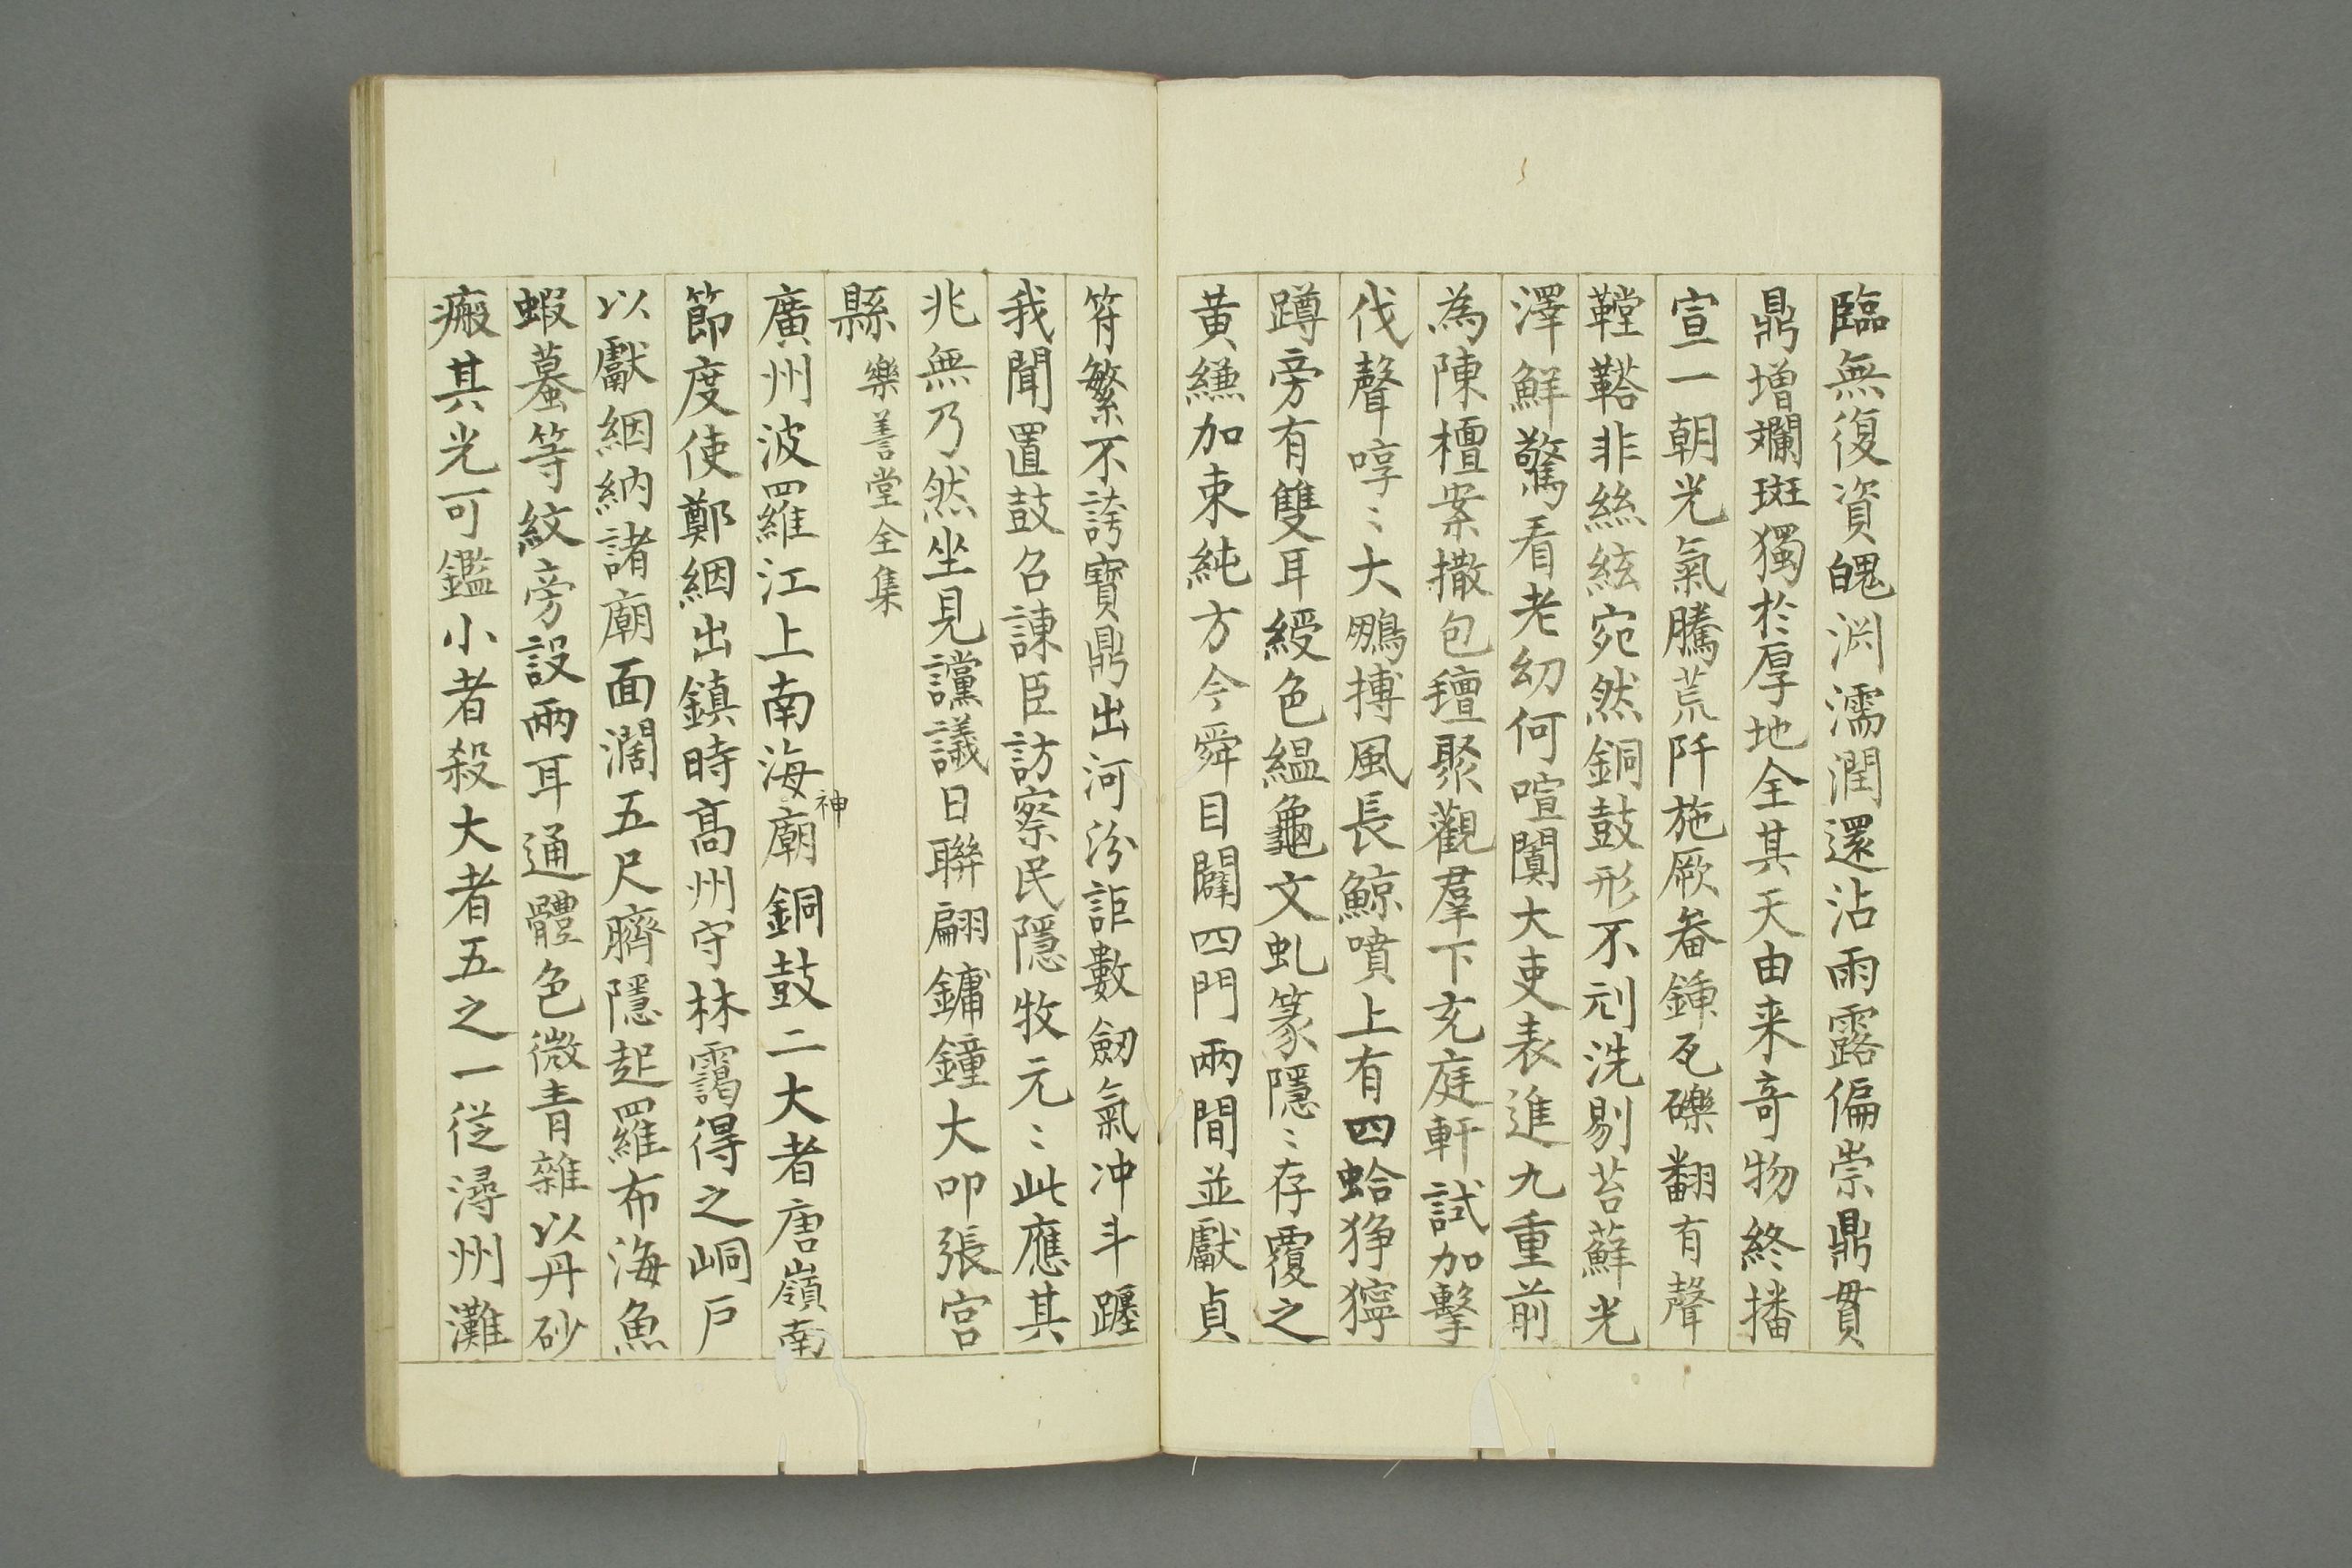 臨無復資魄渕濡潤還沾雨露偏崇鼎貫
鼎増斕斑獨於厚地全其天由来竒物終播
宣一朝光氣騰荒阡施厥畚鍤瓦礫翻有聲
鞺鞳非絲絃宛然銅鼓形不刓洗剔苔蘚光
澤鮮驚看老幼何喧闐大吏表進九重前
為陳檀案撒包氊聚觀羣下充庭軒試加擊
伐聲啍〻大鵬搏風長鯨噴上有四蛤狰獰
蹲旁有雙耳綬色緼龜文虬篆隱〻存覆之
黃縑加束純方今舜目闢四門兩間並獻貞
符繁不誇寶鼎出河汾詎數劒氣冲斗躔
我聞置鼓召諫臣訪察民隱牧元〻此應其
兆無乃然坐見讜議日聯翩鏞鐘大叩張宮
縣 樂善堂全集
廣州波羅江上南海神廟銅鼓二大者唐嶺南
節度使鄭絪出鎮時高州守林靄得之峒戸
以獻絪納諸廟面濶五尺臍隱起羅布海魚
蝦蟇等紋旁設兩耳通體色微青雜以丹砂
瘢其光可鑑小者殺大者五之一從潯州灘